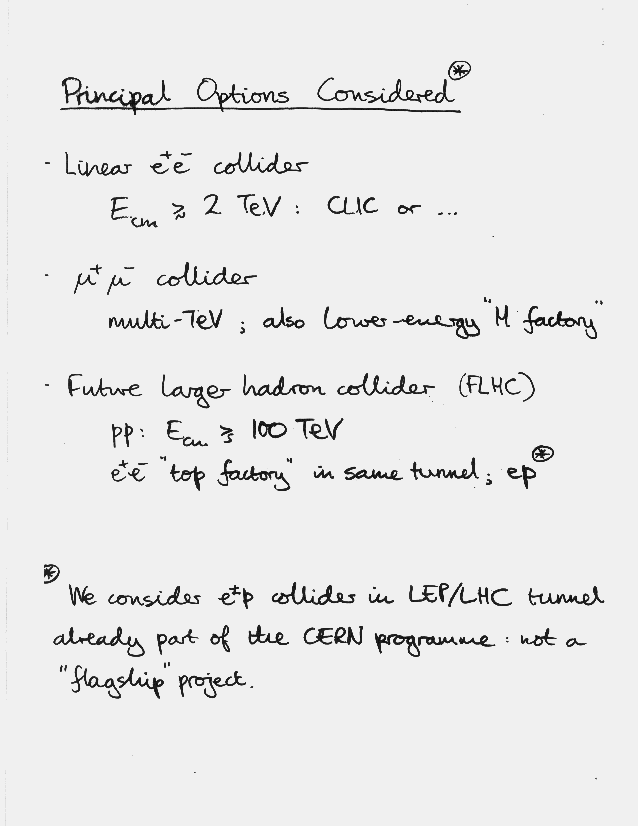 Principal Options Considered ⊛
- Linear e⁺e⁻ collider
E_cm ≳ 2 TeV : CLIC or ...
- μ⁺μ⁻ collider
multi-TeV ; also lower-energy "H factory"
- Future larger hadron collider (FLHC)
pp : E_cm ≳ 100 TeV
e⁺e⁻ "top factory" in same tunnel ; ep ⊛
⊛
We consider e±p collider in LEP/LHC tunnel
already part of the CERN programme : not a
"flagship" project.